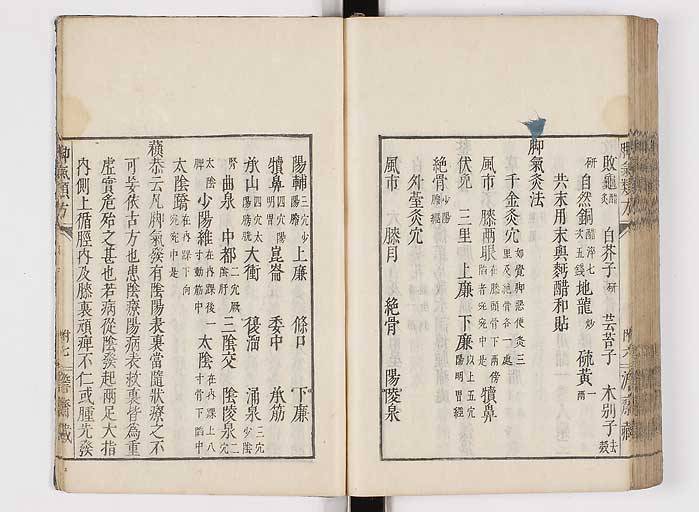 敗龜醋 白芥子研 芸苔子 木別子去殼
研 自然銅醋淬七次五錢 地龍炒 硫黄一兩
共末用末與麪醋和貼
脚氣灸法
千金灸穴如覺脚惡便灸三里及絶骨各一處
風市 膝兩眼在膝頭骨下兩傍陷者宛宛中是 犢鼻
伏兎 三里 上廉 下廉以上五穴陽明胃經
絶骨少陽膽經
外臺灸穴
風市 膝目 絶骨 陽陵泉
脚氣類方 附六
陽輔三穴少陽膽 上廉 條口 下廉
犢鼻四穴陽明胃 崑崙 委中 承筋
承山四穴太陽膀胱 大衝 復溜 涌泉三穴少陰
腎 曲泉 中都二穴厥陰肝 三陰交 陰陵泉二穴
太陰脾 少陽維在内踝後一寸動筋中 太陰在内踝上八寸骨下陷中
太陰蹻在内踝下向宛宛中是
蘋恭云凡脚氣發有陰陽表裏當隨狀療之不
可妄依古方也患陰療陽病表救裏皆爲重
虛實危殆之甚也若病從陰發起兩足大指
内側上循脛内及膝裏頑痺不仁或腫先發
脚氣類方 附七